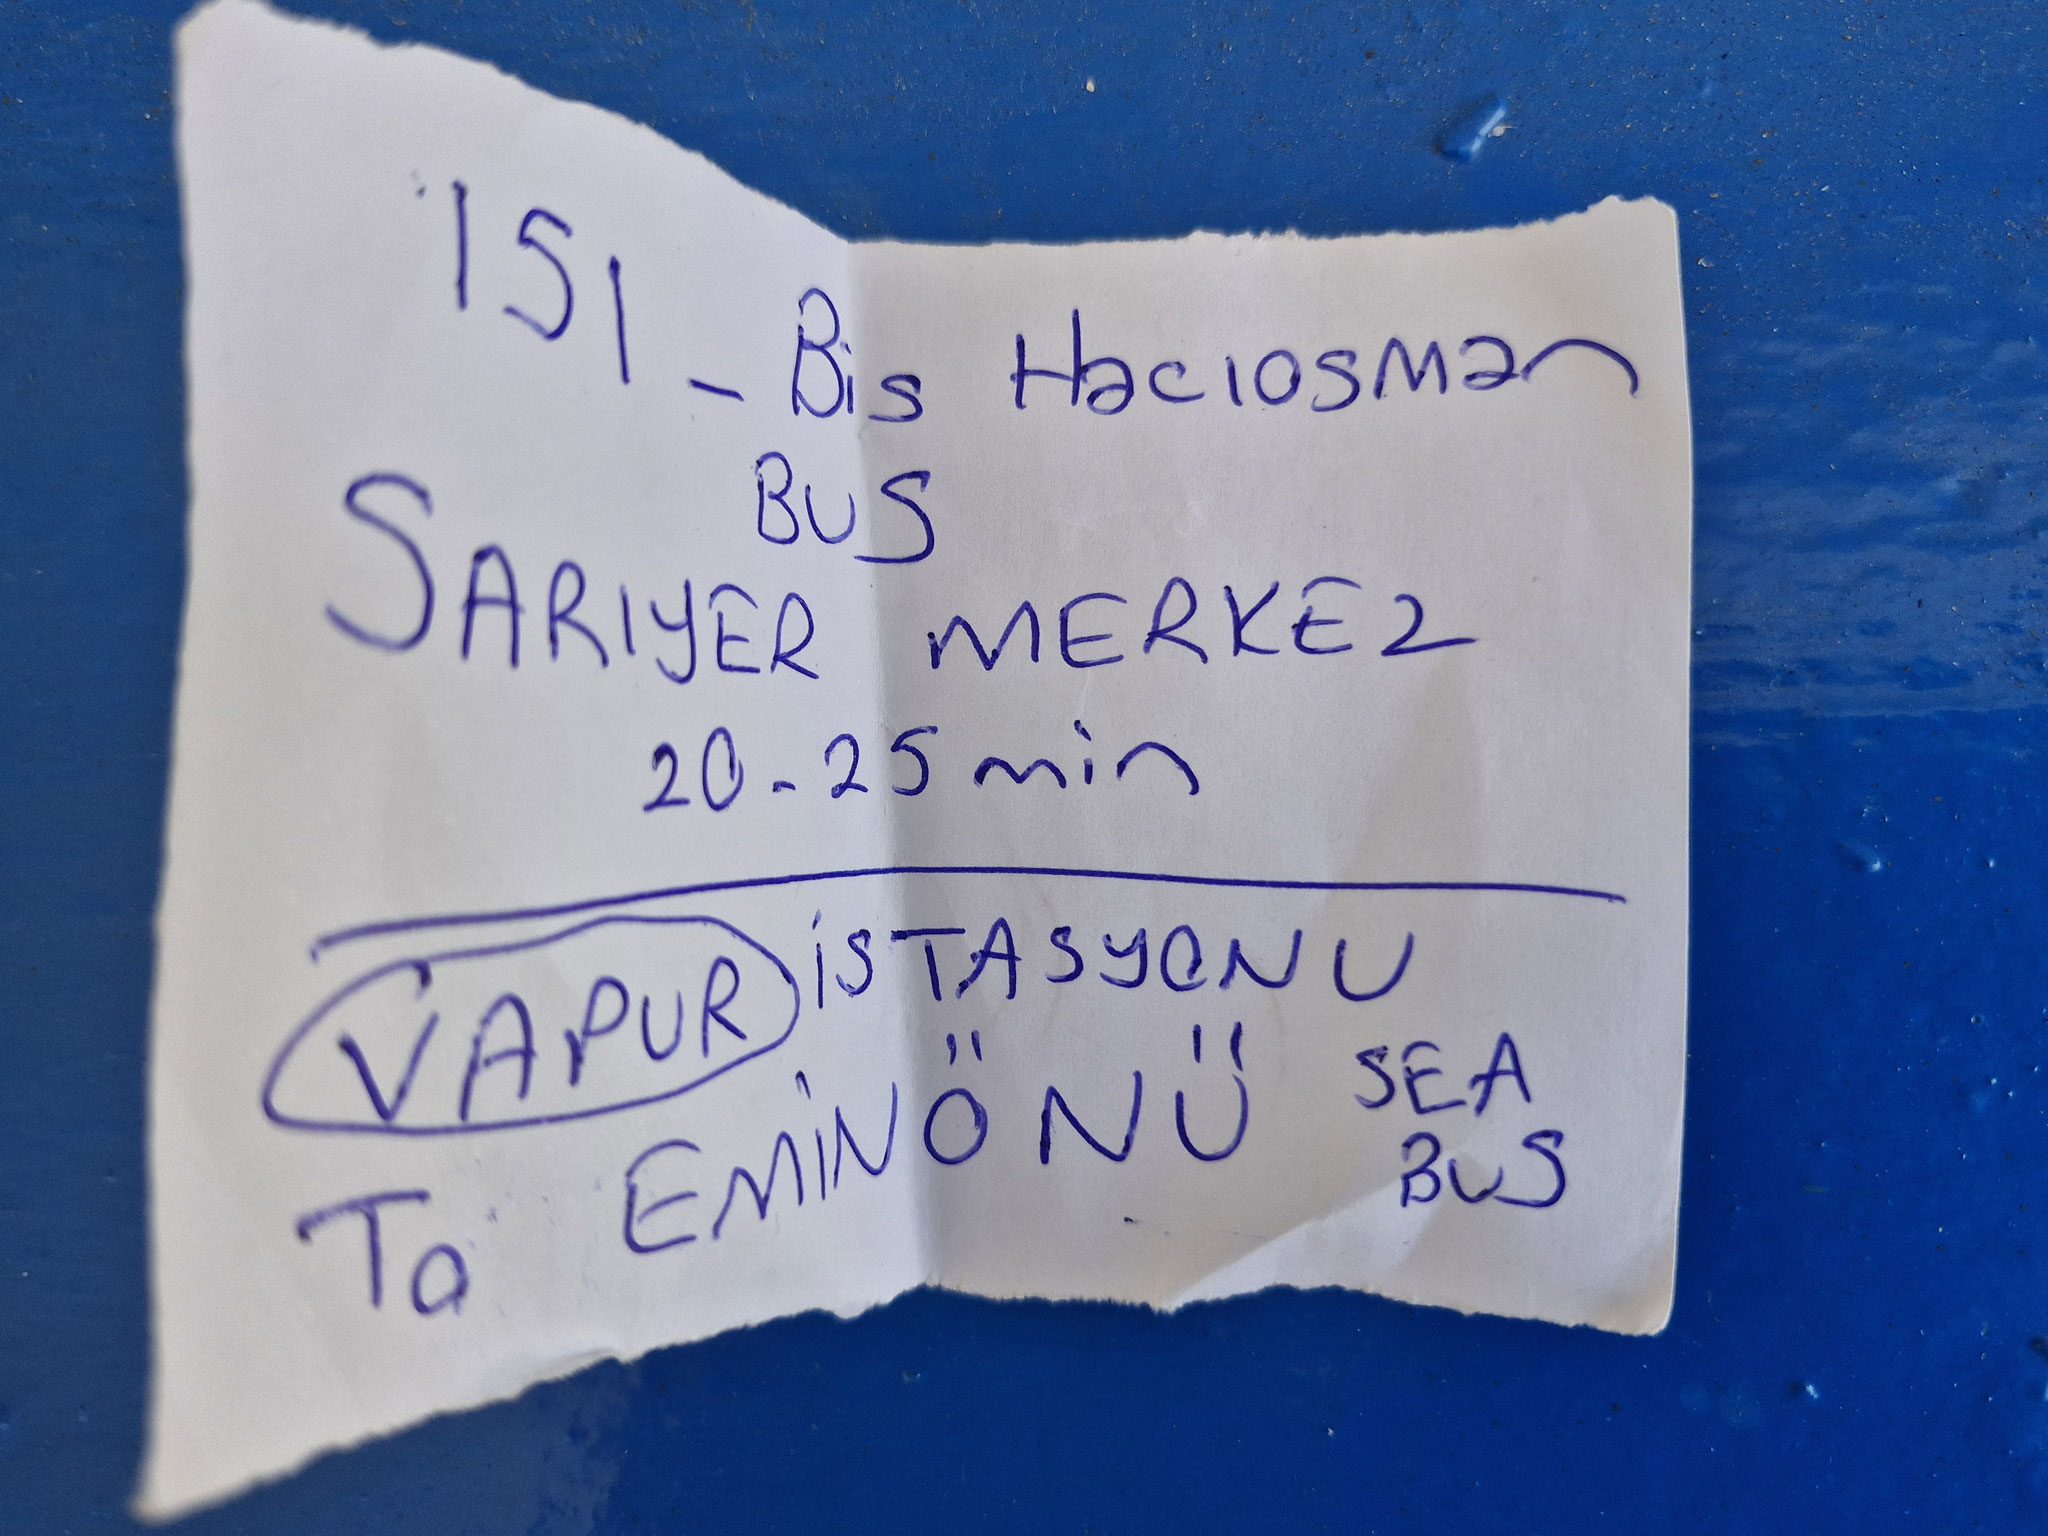 151 - Bis Hacıosman
BUS
SARIYER MERKEZ
20-25 min
VAPUR iSTASYONU
To EMiNÖNÜ SEA
BUS